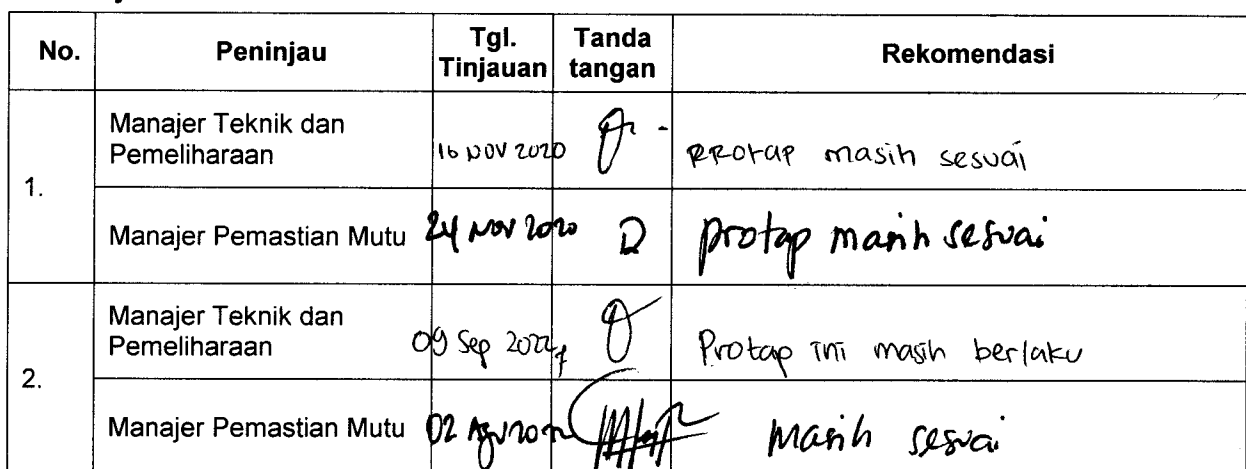 No. Peninjau Tgl. Tinjauan Tanda tangan Rekomendasi
1.
Manajer Teknik dan Pemeliharaan 16 NOV 2020 PROTAP masih sesuai
Manajer Pemastian Mutu 24 Nov 2020 protap masih sesuai
2.
Manajer Teknik dan Pemeliharaan 09 Sep 2022 Protap ini masih berlaku
Manajer Pemastian Mutu 02 masih sesuai